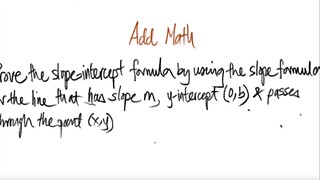 Add Math
rove the slope-intercept formula by using the slope formula
r the line that has slope m, y-intercept (0,b) & passes
hrough the point (x,y)